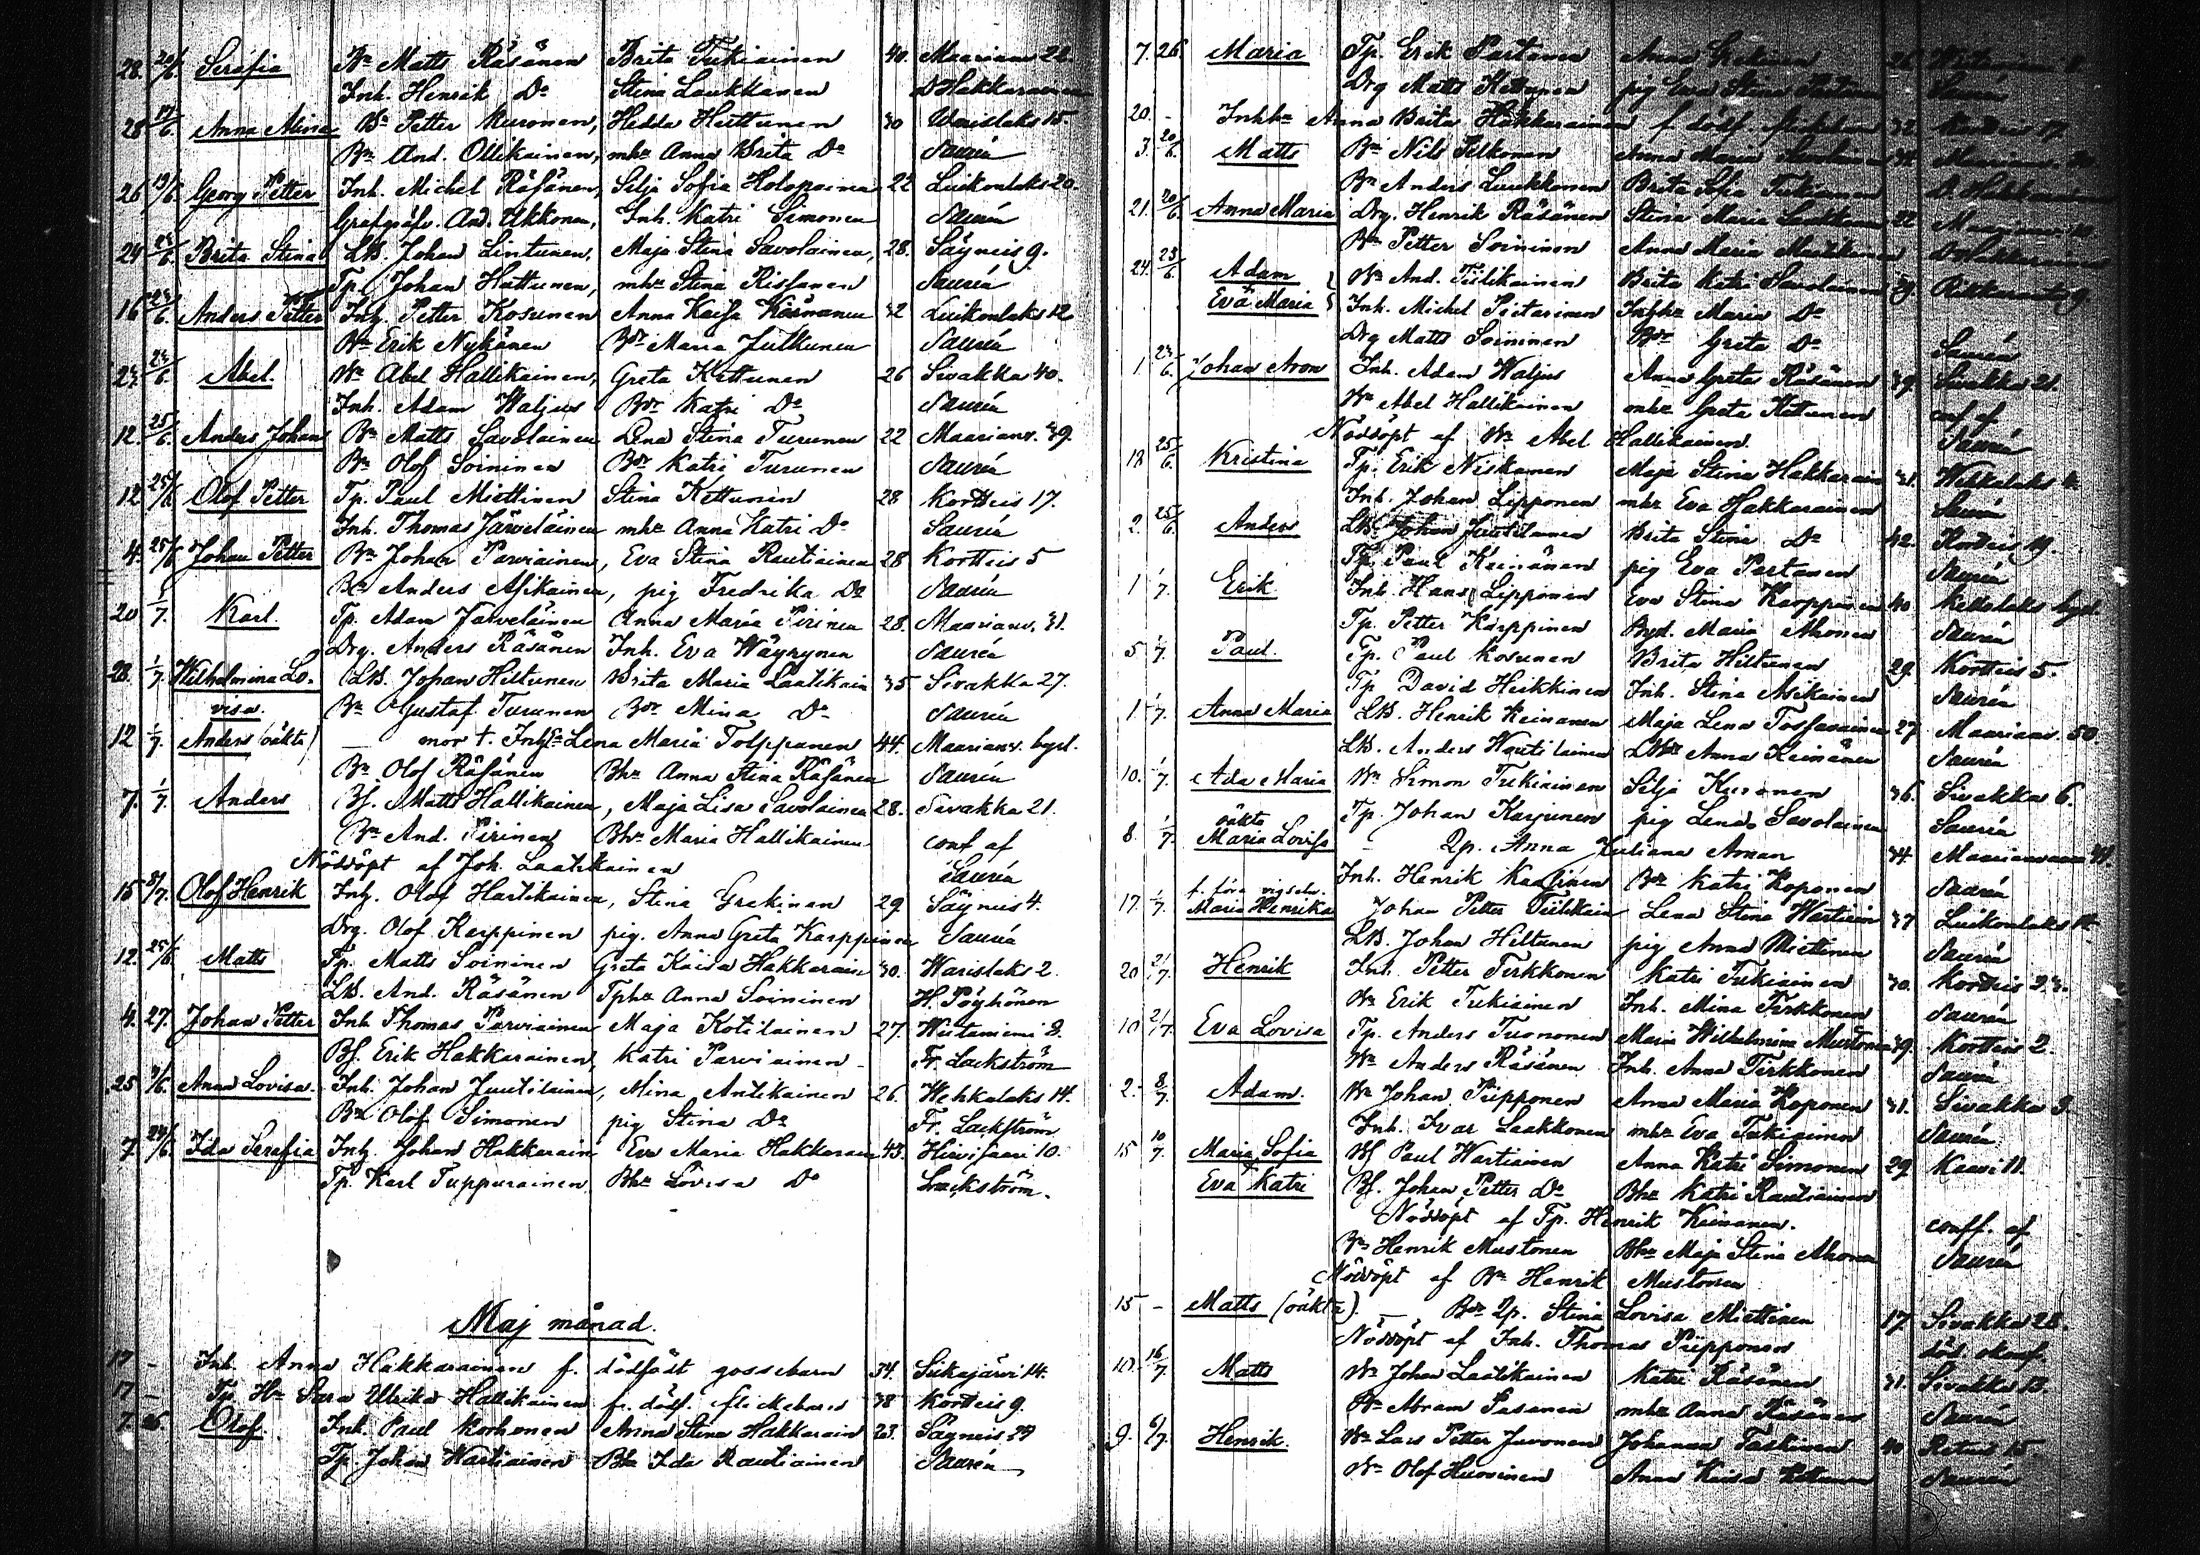 28. 20/6. Serafia Bn Matts Räsänen Brita Tukiainen 40. Maarianv 22.
Inh. Henrik Do Stina Laukkanen D Hakkarainen
28 /6. Anna Mina Bn Petter Muronen, Hedda Hirttunen 30 Warislaks 15.
Bn And. Ollikainen, mhr Anna Brita Do Saurén
26 19/6 Georg Petter Inh. Michel Räsänen, Silja Sofia Holopainen 22 Luikonlaks 20.
And. Ukkonen, Inh. Katri Simonen Saurén
24 /6. Brita Stina LB. Johan Lintunen, Maja Stina Savolainen, 28. Säyneis 9.
Tp. Johan Hattunen, mhr Stina Rissanen Saurén
16 /6. Anders Petter Inh. Petter Kosunen Anna Kaisa Käsmänen 32 Luikonlaks 12.
Bn Erik Nykänen Bdr Maria Julkunen Saurén
/6 Abel. Bn Abel Hallikainen, Greta Kettunen 26 Sivakka 40.
Inh. Adam Waljus Bdr Katri Do Saurén
12. 25/6. Anders Johan Bn Matts Savolainen Lena Stina Turunen 22 Maarianv. 39.
Bn Olof Soininen Bdr Katri Turunen Saurén
12 25/6 Olof Petter Tp. Paul Miettinen Stina Kettunen 28 Kortteis 17.
Inh. Thomas Järveläinen mhr Anna Katri Do Saurén
4. 25/6 Johan Petter Bn Johan Parviainen, Eva Stina Rautiainen 28 Kortteis 5
Bn Anders Asikainen, pig Fredrika Do Saurén
20 1/7. Karl. Tp. Adam Järveläinen Anna Maria Pirinen 28. Maarianv. 31.
Drg. Anders Räsänen Inh. Eva Wäyrynen Saurén
28. 1/7. Wilhelmina Lo- LB. Johan Hiltunen Brita Maria Laatikain 35 Sivakka 27.
visa. Bn Gustaf Turunen Bdr Mina Do Saurén
12 1/7. Anders (oäkta) — mor t. Inh Lena Maria Tolppanen 44. Maarianv. bysl.
Bn Olof Räsänen Bhr Anna Stina Räsänen Saurén
7. 1/7. Anders Bf. Matts Hallikainen, Maja Lisa Savolainen 28. Sivakka 21.
Bn And. Pirinen Bhr Maria Hallikainen conf af
Nöddöpt af Joh. Laatikainen Saurén
15 8/7. Olof Henrik Inh. Olof Hartikainen, Stina Grekinen 29 Säyneis 4.
Drg. Olof Karppinen pig. Anna Greta Karppinen Saurén
12. 25/6 Matts Tp. Matts Soininen Greta Kaisa Hakkarain 30. Warislaks 2.
LB. And. Räsänen Tphr Anna Soininen H. Pöyhönen
4. 27. Johan Petter Inh Thomas Parviainen Maja Kotilainen 27. Wiitaniemi 3.
Bf. Erik Hakkarainen, Katri Parviainen - Fr. Lackström
25 /6. Anna Lovisa. Inh. Johan Juutilainen, Mina Antikainen 26. Wehkalaks 14.
Bn Olof Simonen pig Stina Do Fr. Lackström
7. 24/6 Ida Serafia Inh. Johan Hakkarain Eva Maria Hakkarain 43. Hirvisaari 10.
Tp. Karl Tuppurainen Bhr Lovisa Do Lackström.
Maj månad.
17 - Inh. Anna Hakkarainen f. dödfödt gossebarn 34. Siikajärvi 14.
17 — Tp. Hr Sara Ulrika Hallikainen fr. dödf. flickebarn 38 Kortteis 9.
7. 26. Olof. Inh. Paul Korhonen Anna Stina Hakkarain 23. Säyneis
Tp. Johan Wartiainen Bhr Ida Rautiainen Saurén
7. 26. Maria Tp. Erik Partanen Anna
Drg Matts Kettunen pig Stina Saurén
20. - Inhhr Anna Brita Hakkarainen f dödf. 32. Kortteis 17.
3. 20/6. Matts Bn Nils Pelkonen Anna Maria
Bn Anders Luukkonen Brita Tukiainen D. Hakkarainen
21. 20/6. Anna Maria Drg. Henrik Räsänen Stina Maria 22
Bn Petter Soininen Anna Maria D Hakkarainen
24. 23/6 Adam Bn And. Tiilikainen Brita Katri Savolainen 39.
Eva Maria Inh. Michel Pietarinen Inhhr Maria Do
Drg Matts Soininen Bdr Greta Do Saurén
1 /6. Johan Aron Inh. Adam Waljus Anna Greta Räsänen 39. Sivakka 21.
Bn Abel Hallikainen mhr Greta Kettunen conf af
Nöddöpt af Bn Abel Hallikainen. Saurén
18 25/6. Kristina Tp. Erik Niskanen Maja Stina Hakkarain 31. Wehkalaks
Inh. Johan Lipponen mhr Eva Hakkarainen Saurén
2. 25/6 Anders LB. Johan Juutilainen Brita Stina Do 42. Kortteis 19.
Tp. Paul Keinänen pig Eva Partanen Saurén
1 1/7. Erik Inh. Hans Lipponen Eva Stina Karppinen 40 bysl.
Tp. Petter Karppinen Maria Ahonen Saurén
5 1/7. Paul. Tp. Paul Kosunen Brita Hiltunen 29. Kortteis 5.
Tp David Heikkinen Inh. Stina Asikainen Saurén
1 1/7. Anna Maria LB. Henrik Keinänen Maja Lena Tossavainen 27 Maarianv. 50
LB. Anders Wäntilainen LBhr Anna Keinänen Saurén
10. 1/7. Ada Maria Bn Simon Tukiainen Silja Kuronen 36. Sivakka 6.
Tp. Johan Karjunen pig Lena Savolainen Saurén
8. 1/7. oäkta Maria Lovisa - Qp. Anna Juliana Aman 34. Maarianvaara
Inh. Henrik Kautinen Bdr Katri Koponen Saurén
17. 1/7. f. före vigseln. Maria Henrika Johan Petter Tiilikain Lena Stina Wartiain 37 Luikonlaks
LB. Johan Hiltunen pig Anna Miettinen Saurén
20 2/7. Henrik Inh. Petter Tirkkonen Katri Tukiainen 30. Kortteis
Bn Erik Tukiainen Inh. Mina Tirkkonen Saurén
10 2/7. Eva Lovisa Tp. Anders Tuononen Maria Wilhelmina Mustonen 39. Kortteis 2.
Bn Anders Räsänen Inh. Anna Tirkkonen Saurén
2. 8/7. Adam. Bn Johan Piipponen Anna Maria Koponen 31. Sivakka 3.
Inh. Ivar Laakkonen mhr Eva Tukiainen Saurén
15 10/7. Maria Sofia Bf Paul Wartiainen Anna Katri Simonen 29. Kaavi 11.
Eva Katri Bf. Johan Petter Do Bhr Katri Rautiainen
Nöddöpt af Tp. Henrik Keinänen. conff. af
Bn Henrik Mustonen Bhr Maja Stina Ahonen Saurén
Nöddöpt af Bn Henrik Mustonen
15 - Matts (oäkta). — Bdr Qp. Stina Lovisa Miettinen 17. Sivakka 28.
Nöddöpt af Inh. Thomas Piipponen död okonf.
10. 16/7. Matts Bn Johan Laatikainen Katri Räsänen 31. Sivakka 13.
Bn Abram Pasanen mhr Anna Räsänen Saurén
9. 6/7. Henrik. Bn Lars Petter Juvonen Johanna Taskinen 40
Bn Olof Huovinen Anna Kaisa Saurén